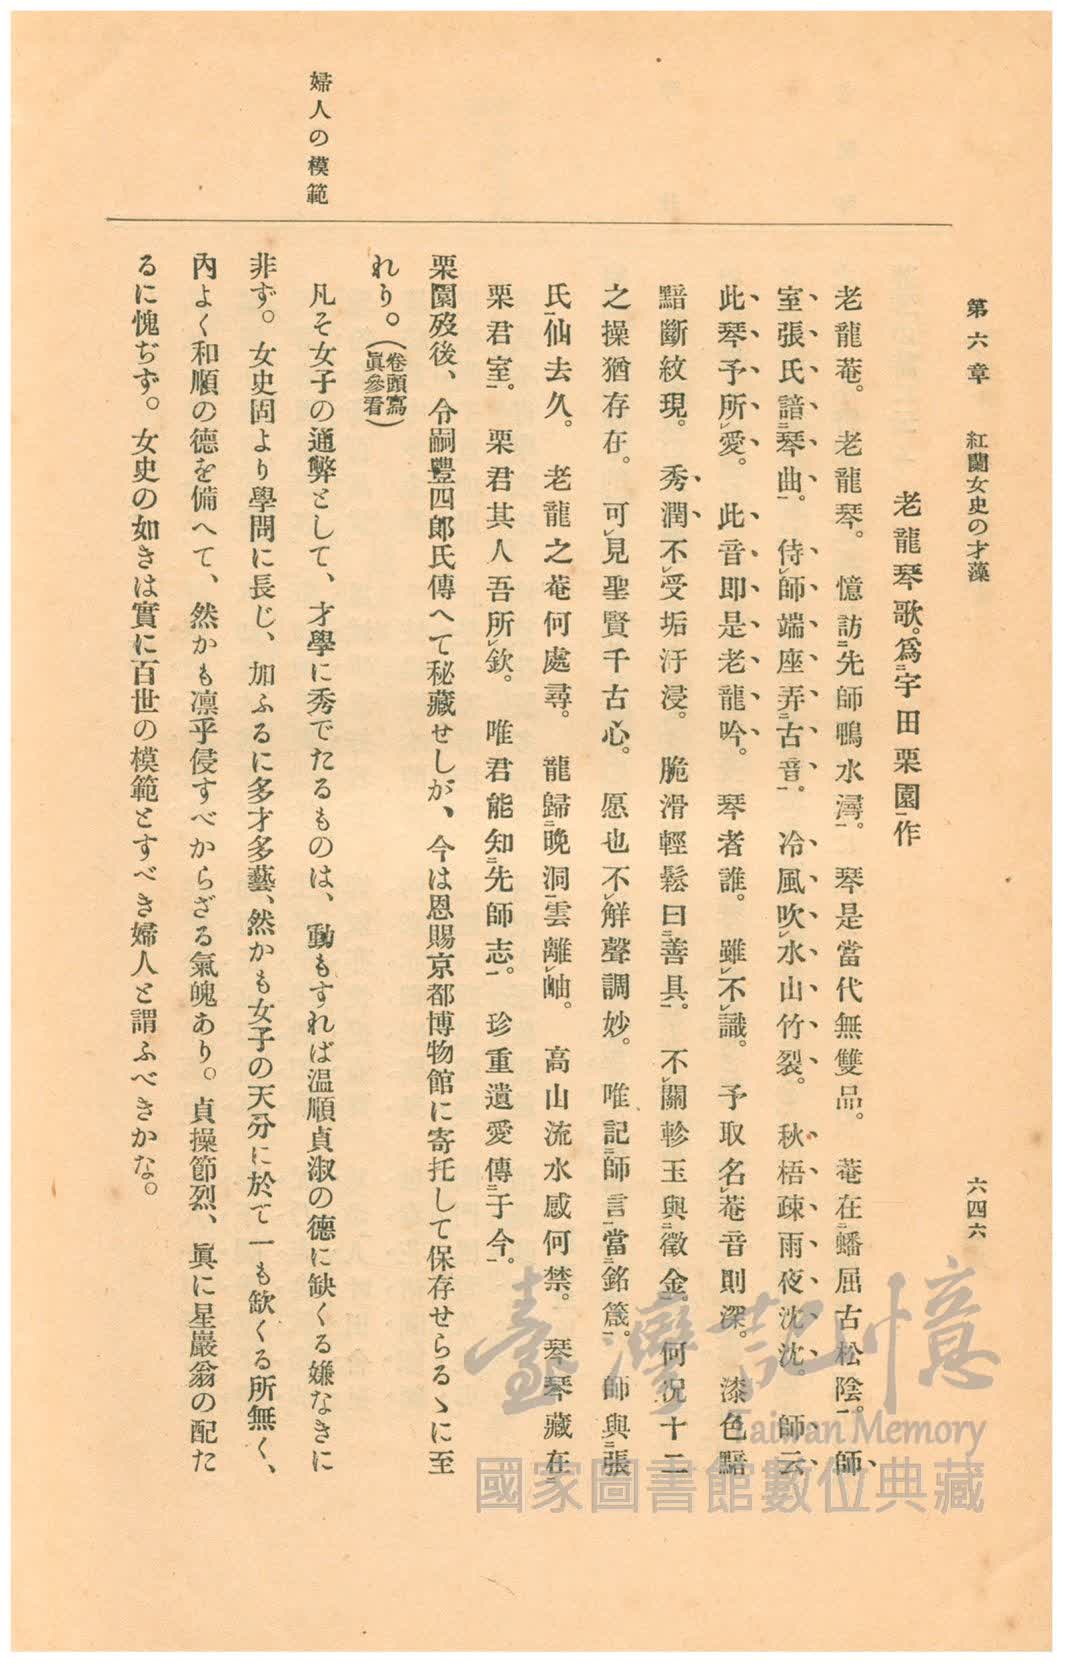 第六章　紅蘭女史の才藻　六四六
老龍琴歌。爲㆓宇田栗園㆒作
老龍菴。老龍琴。憶訪㆓先師鴨水潯㆒。琴是當代無雙品。菴在㆓蟠屈古松陰㆒。師
室張氏諳㆓琴曲㆒。侍㆑師端座弄㆓古音㆒。冷風吹㆑水山竹裂。秋梧疎雨夜沈沈。師云
此琴予所㆑愛。此音即是老龍吟。琴者誰。雖㆑不㆑識。予取名㆑菴音則深。漆色黯
黯斷紋現。秀潤不㆑受垢汙浸。脆滑輕鬆曰㆓善具㆒。不㆑關軫玉與㆓徽金㆒。何況十二
之操猶存在。可㆑見聖賢千古心。愿也不㆑解聲調妙。唯記㆓師言㆒當㆓銘箴㆒。師與㆓張
氏㆒仙去久。老龍之菴何處尋。龍歸㆓晚洞㆒雲離㆑岫。高山流水感何禁。琴琴藏在㆓
栗君室㆒。栗君其人吾所㆑欽。唯君能知㆓先師志㆒。珍重遺愛傳㆓于今㆒。
栗園歿後、令嗣豐四郎氏傳へて秘藏せしが、今は恩賜京都博物館に寄托して保存せらるゝに至
れり。（卷頭寫眞參看）
婦人の模範
凡そ女子の通弊として、才學に秀でたるものは、動もすれば温順貞淑の德に缺くる嫌なきに
非ず。女史固より學問に長じ、加ふるに多才多藝、然かも女子の天分に於て一も缺くる所無く、
內よく和順の德を備へて、然かも凛乎侵すべからざる氣魄あり。貞操節烈、眞に星巖翁の配た
るに愧ぢず。女史の如きは實に百世の模範とすべき婦人と謂ふべきかな。
臺灣記憶
Taiwan Memory
國家圖書館數位典藏